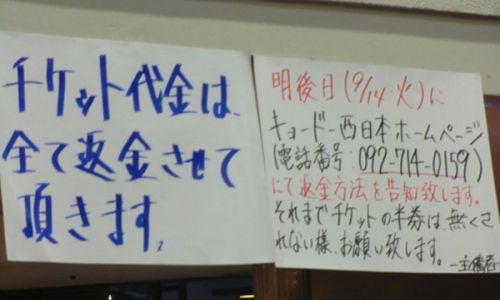 チケット代金は、
全て返金させて
頂きます。
明後日(9/14 火)に
キョードー西日本ホームページ
(電話番号:092-714-0159)
にて返金方法を告知致します。
それまでチケットの半券は、無くさ
れない様、お願い致します。
－主催者－